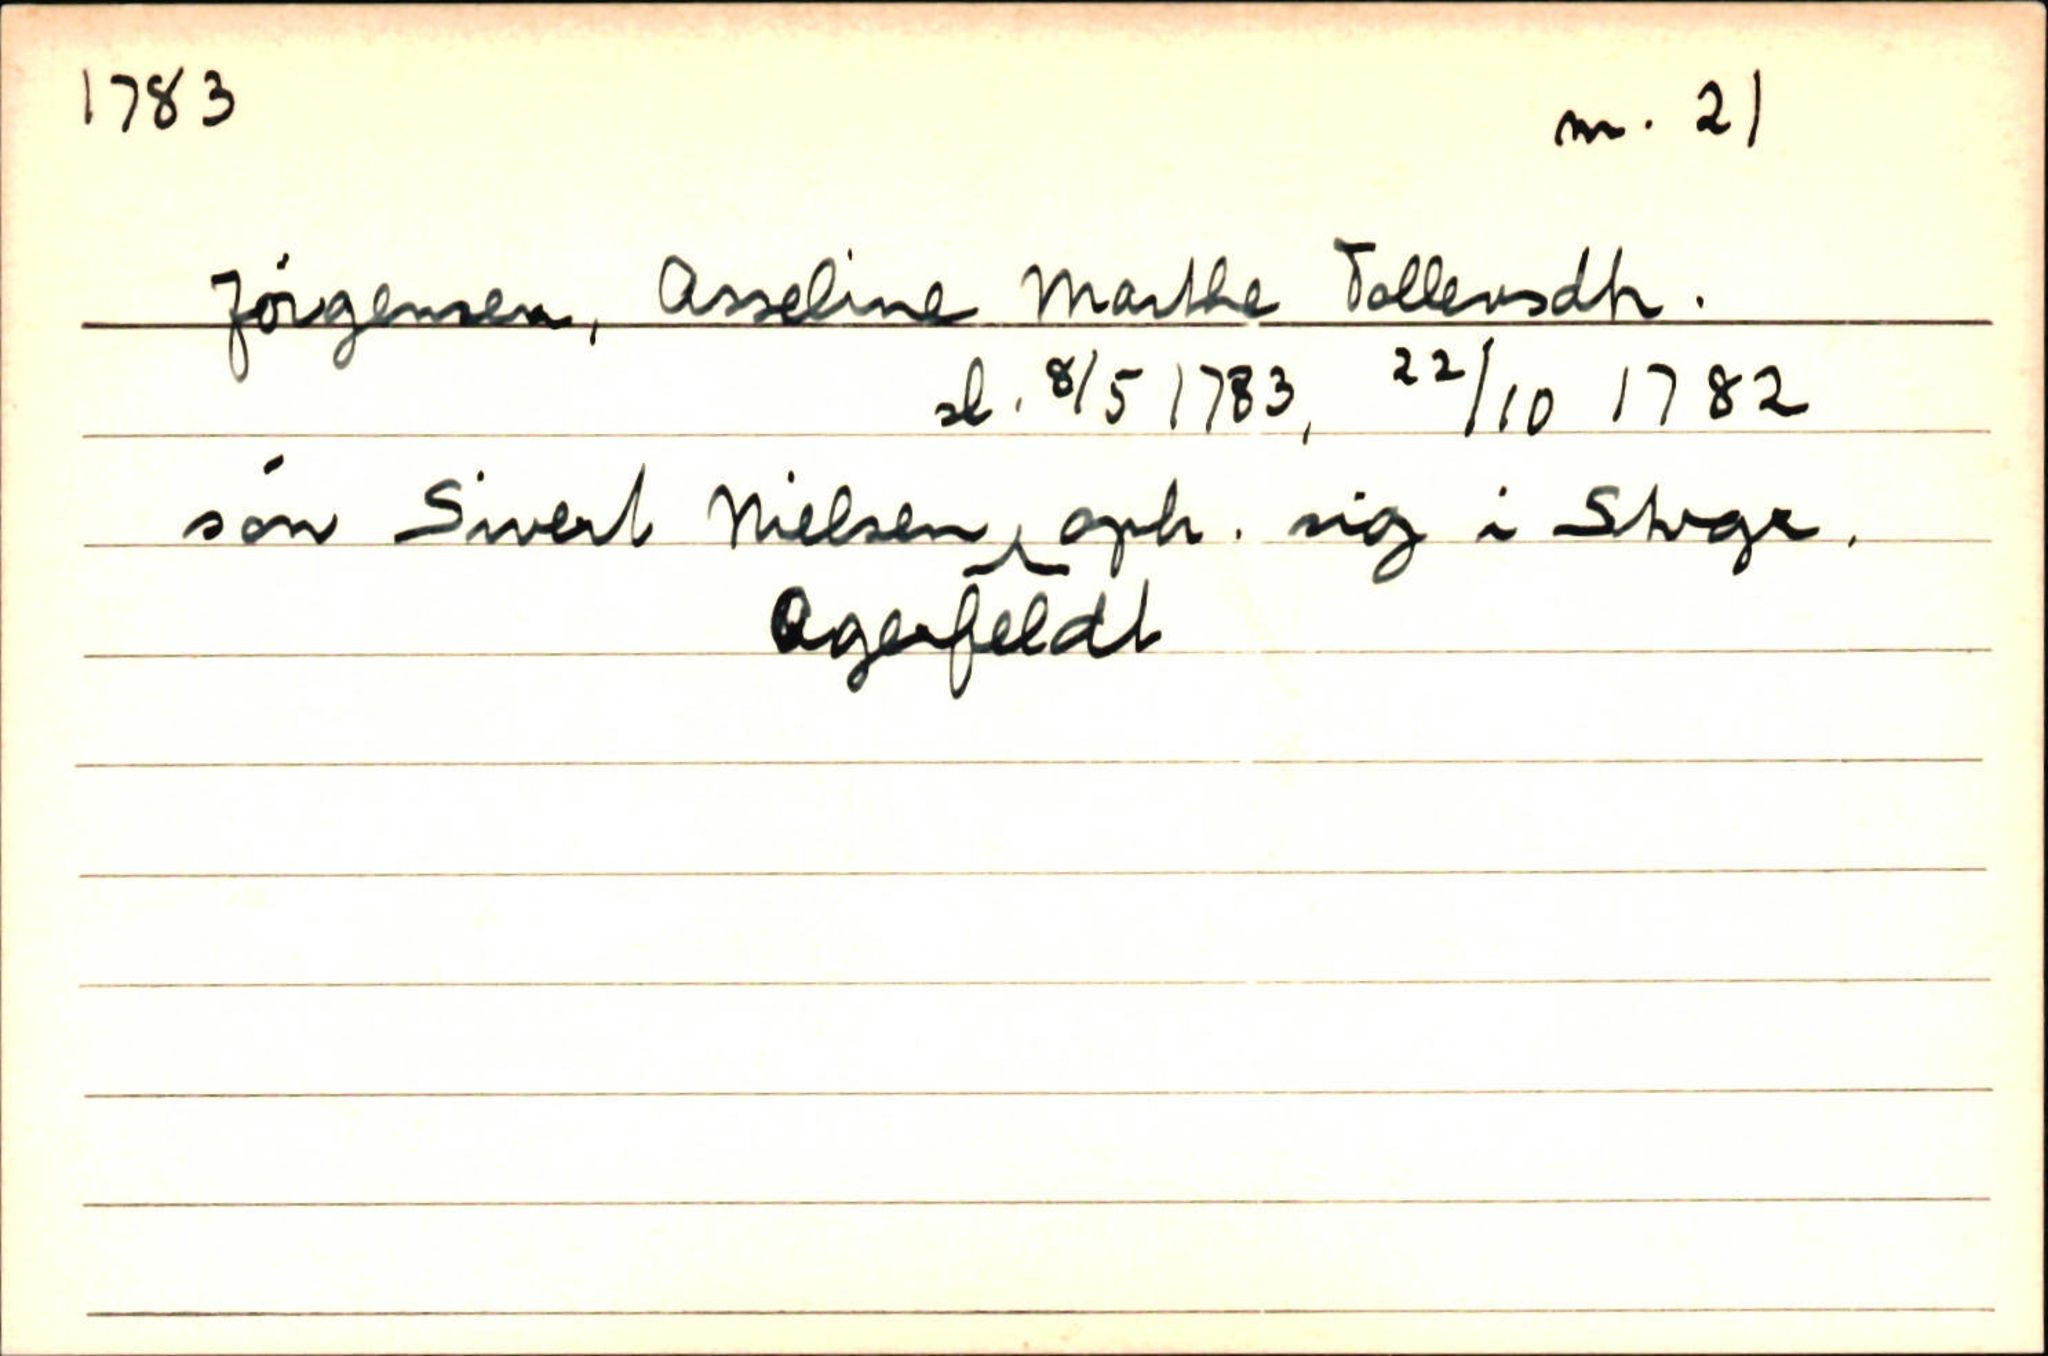 1783 m. 21
Jørgensen, Asseline Marthe Tollevsdtr.
sl. 8/5 1783, 22/10 1782
søn Sivert Nielsen, oph. sig i Stvgr.
Agerfeldt